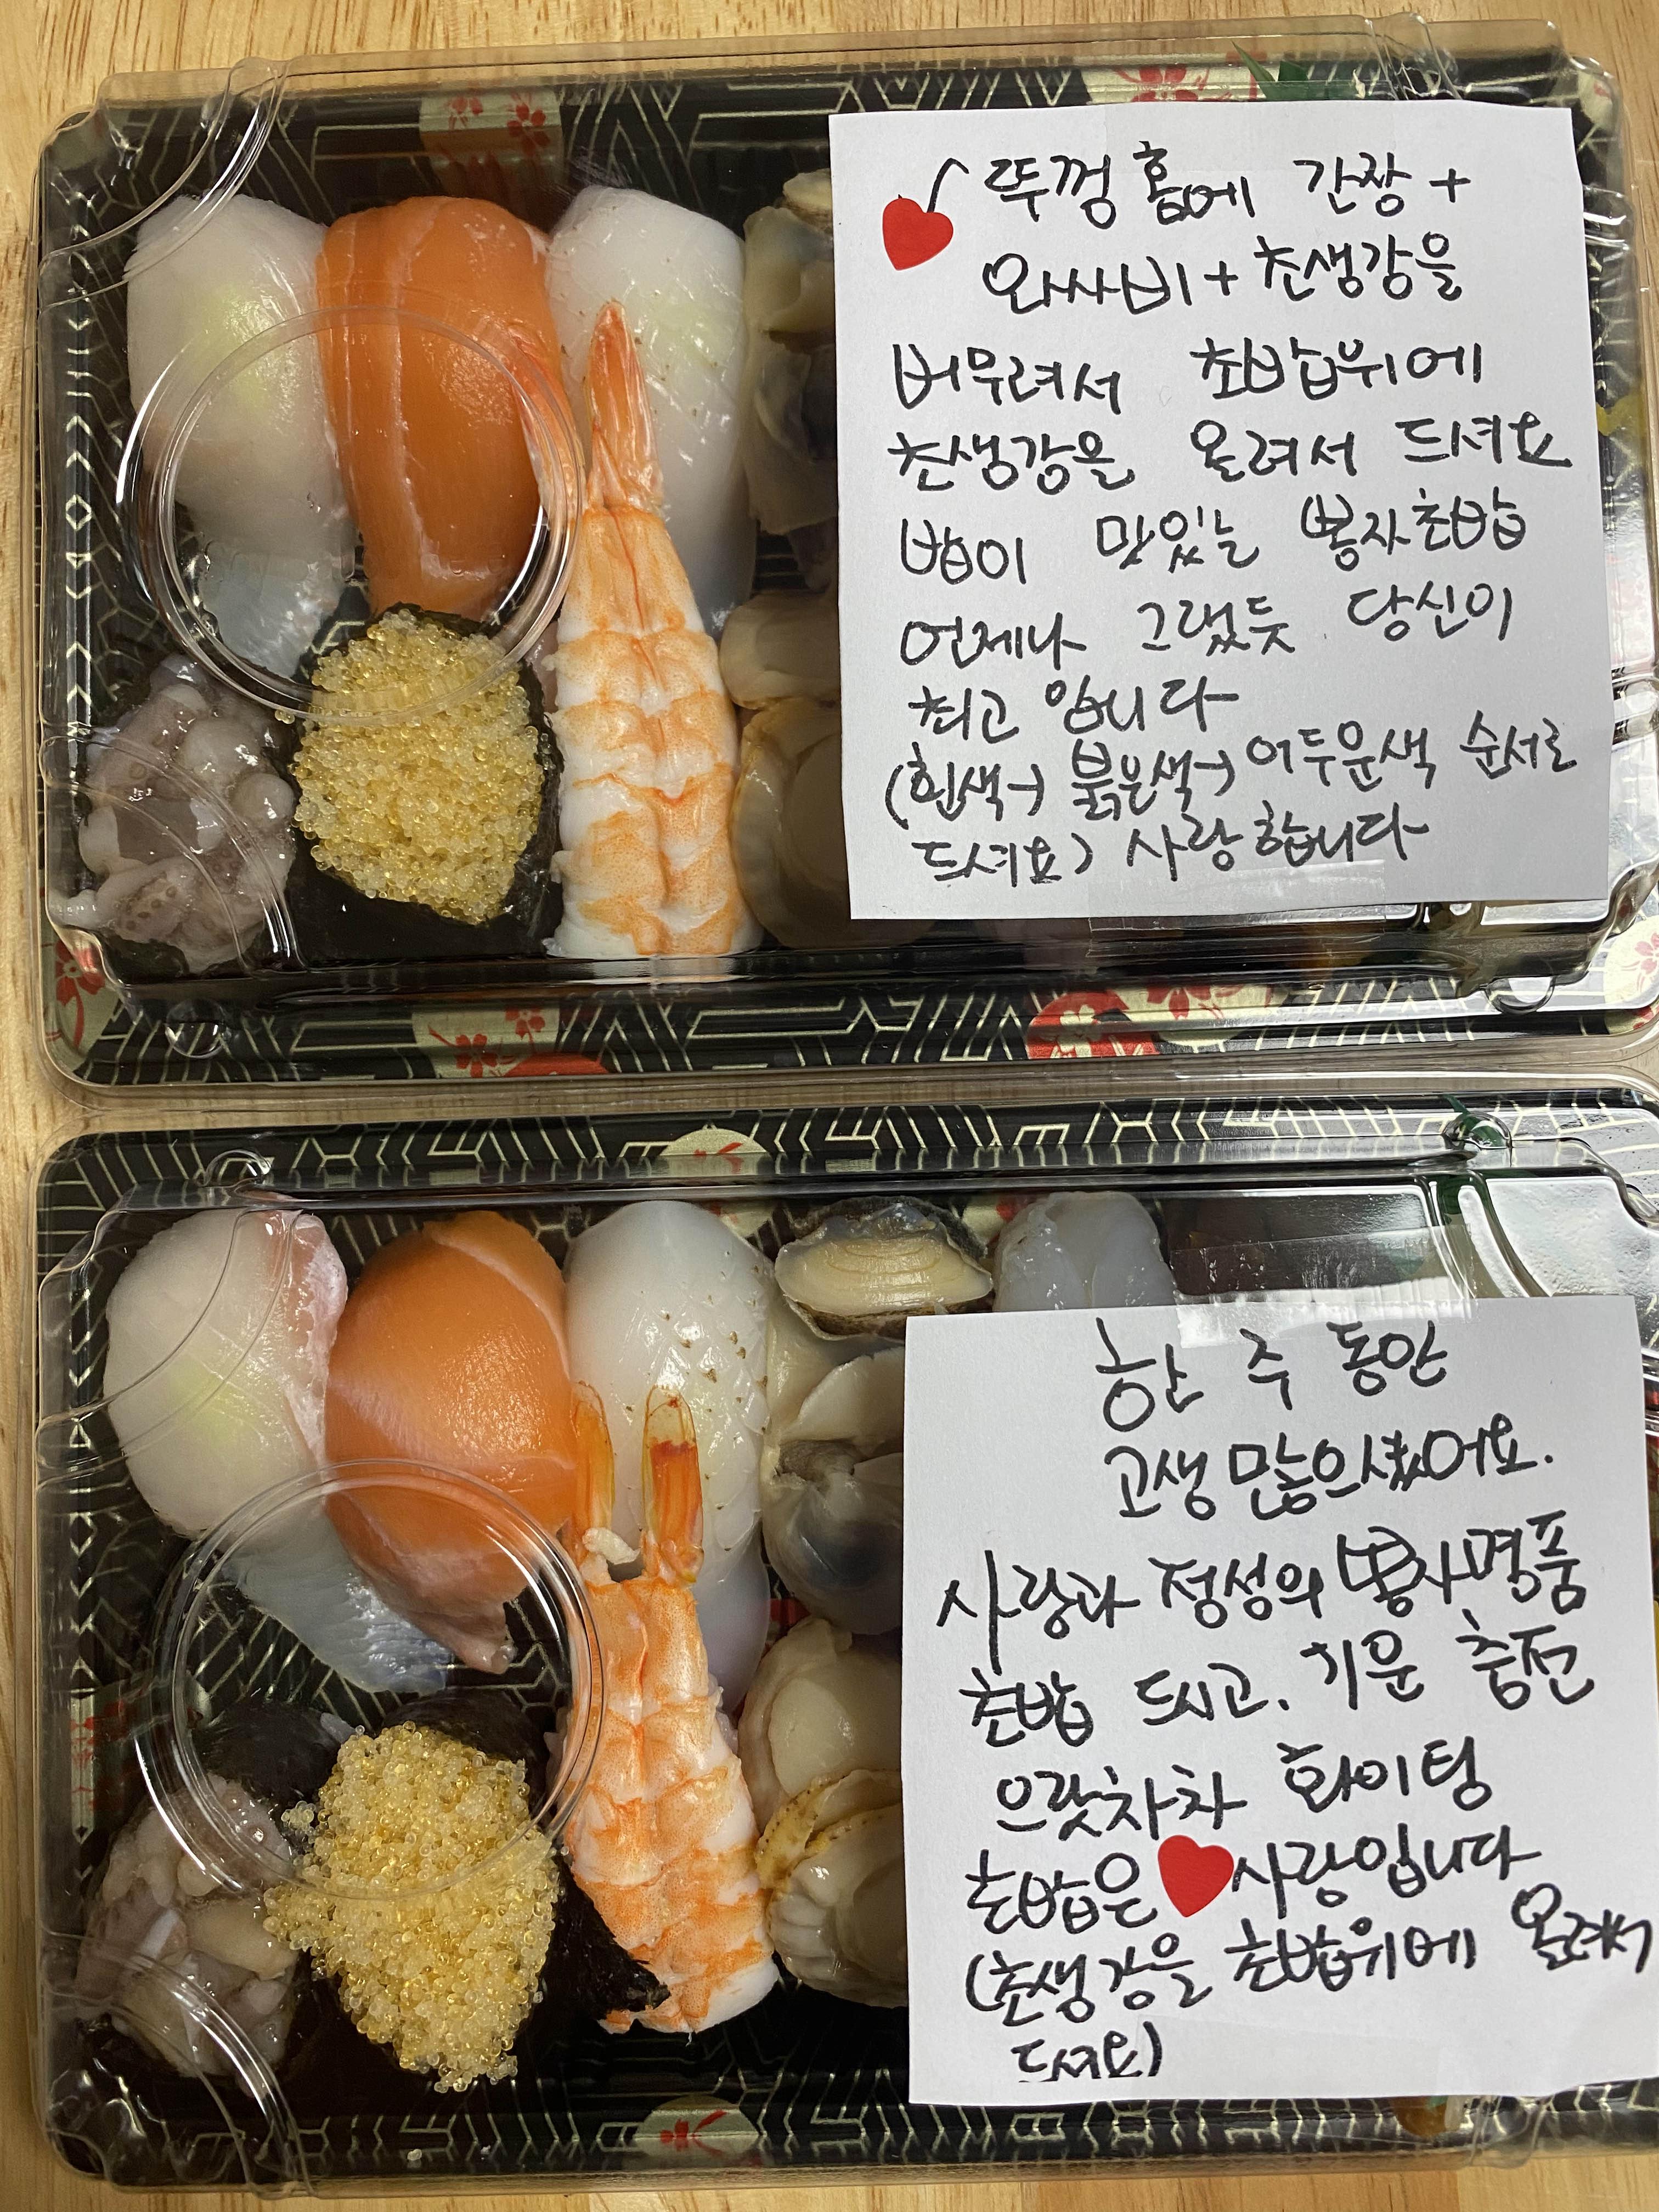 뚜껑 홈에 간장 +
와사비 + 초생강을
버무려서 초밥위에
초생강을 올려서 드셔요
밥이 맛있는 봉자초밥
언제나 그랬듯 당신이
최고 입니다
(흰색→ 붉은색→ 어두운색 순서로
드셔요) 사랑합니다
한 주 동안
고생 많으셨어요.
사랑과 정성의 봉자명품
초밥 드시고. 기운 충전
으랏차차 화이팅
초밥은 ♥ 사랑입니다
(초생강을 초밥위에 올려서
드셔요)